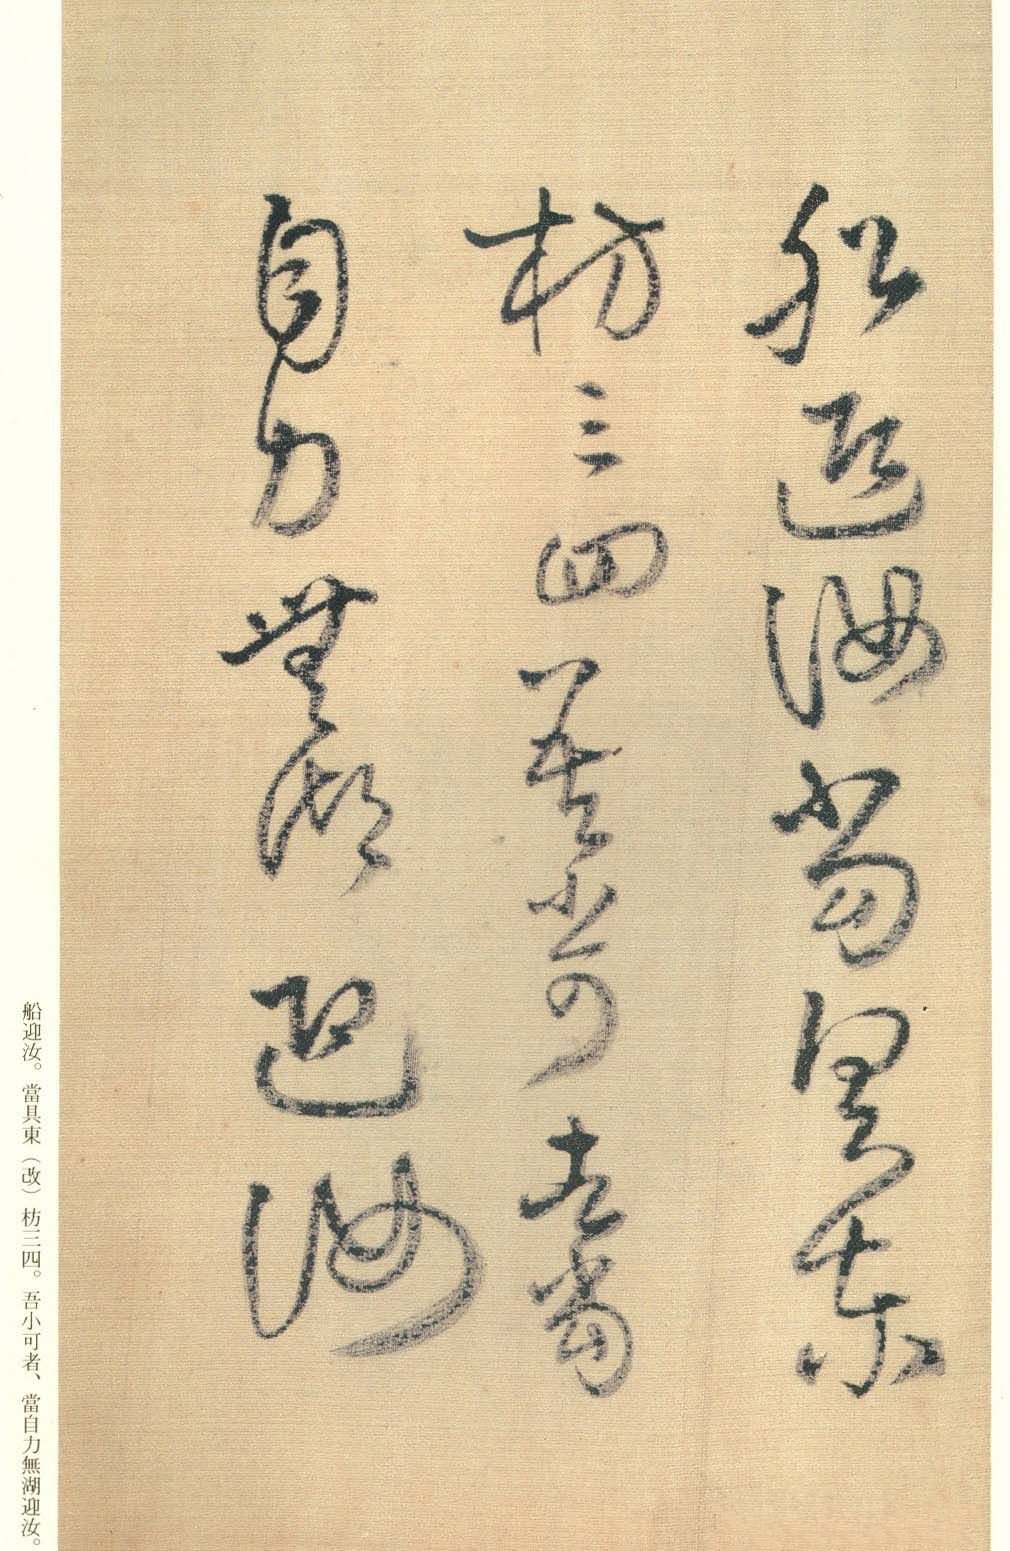 船迎汝當具東
枋三四吾小可者當
自力無湖迎汝
船迎汝。當具東（改）枋三四。吾小可者、當自力無湖迎汝。